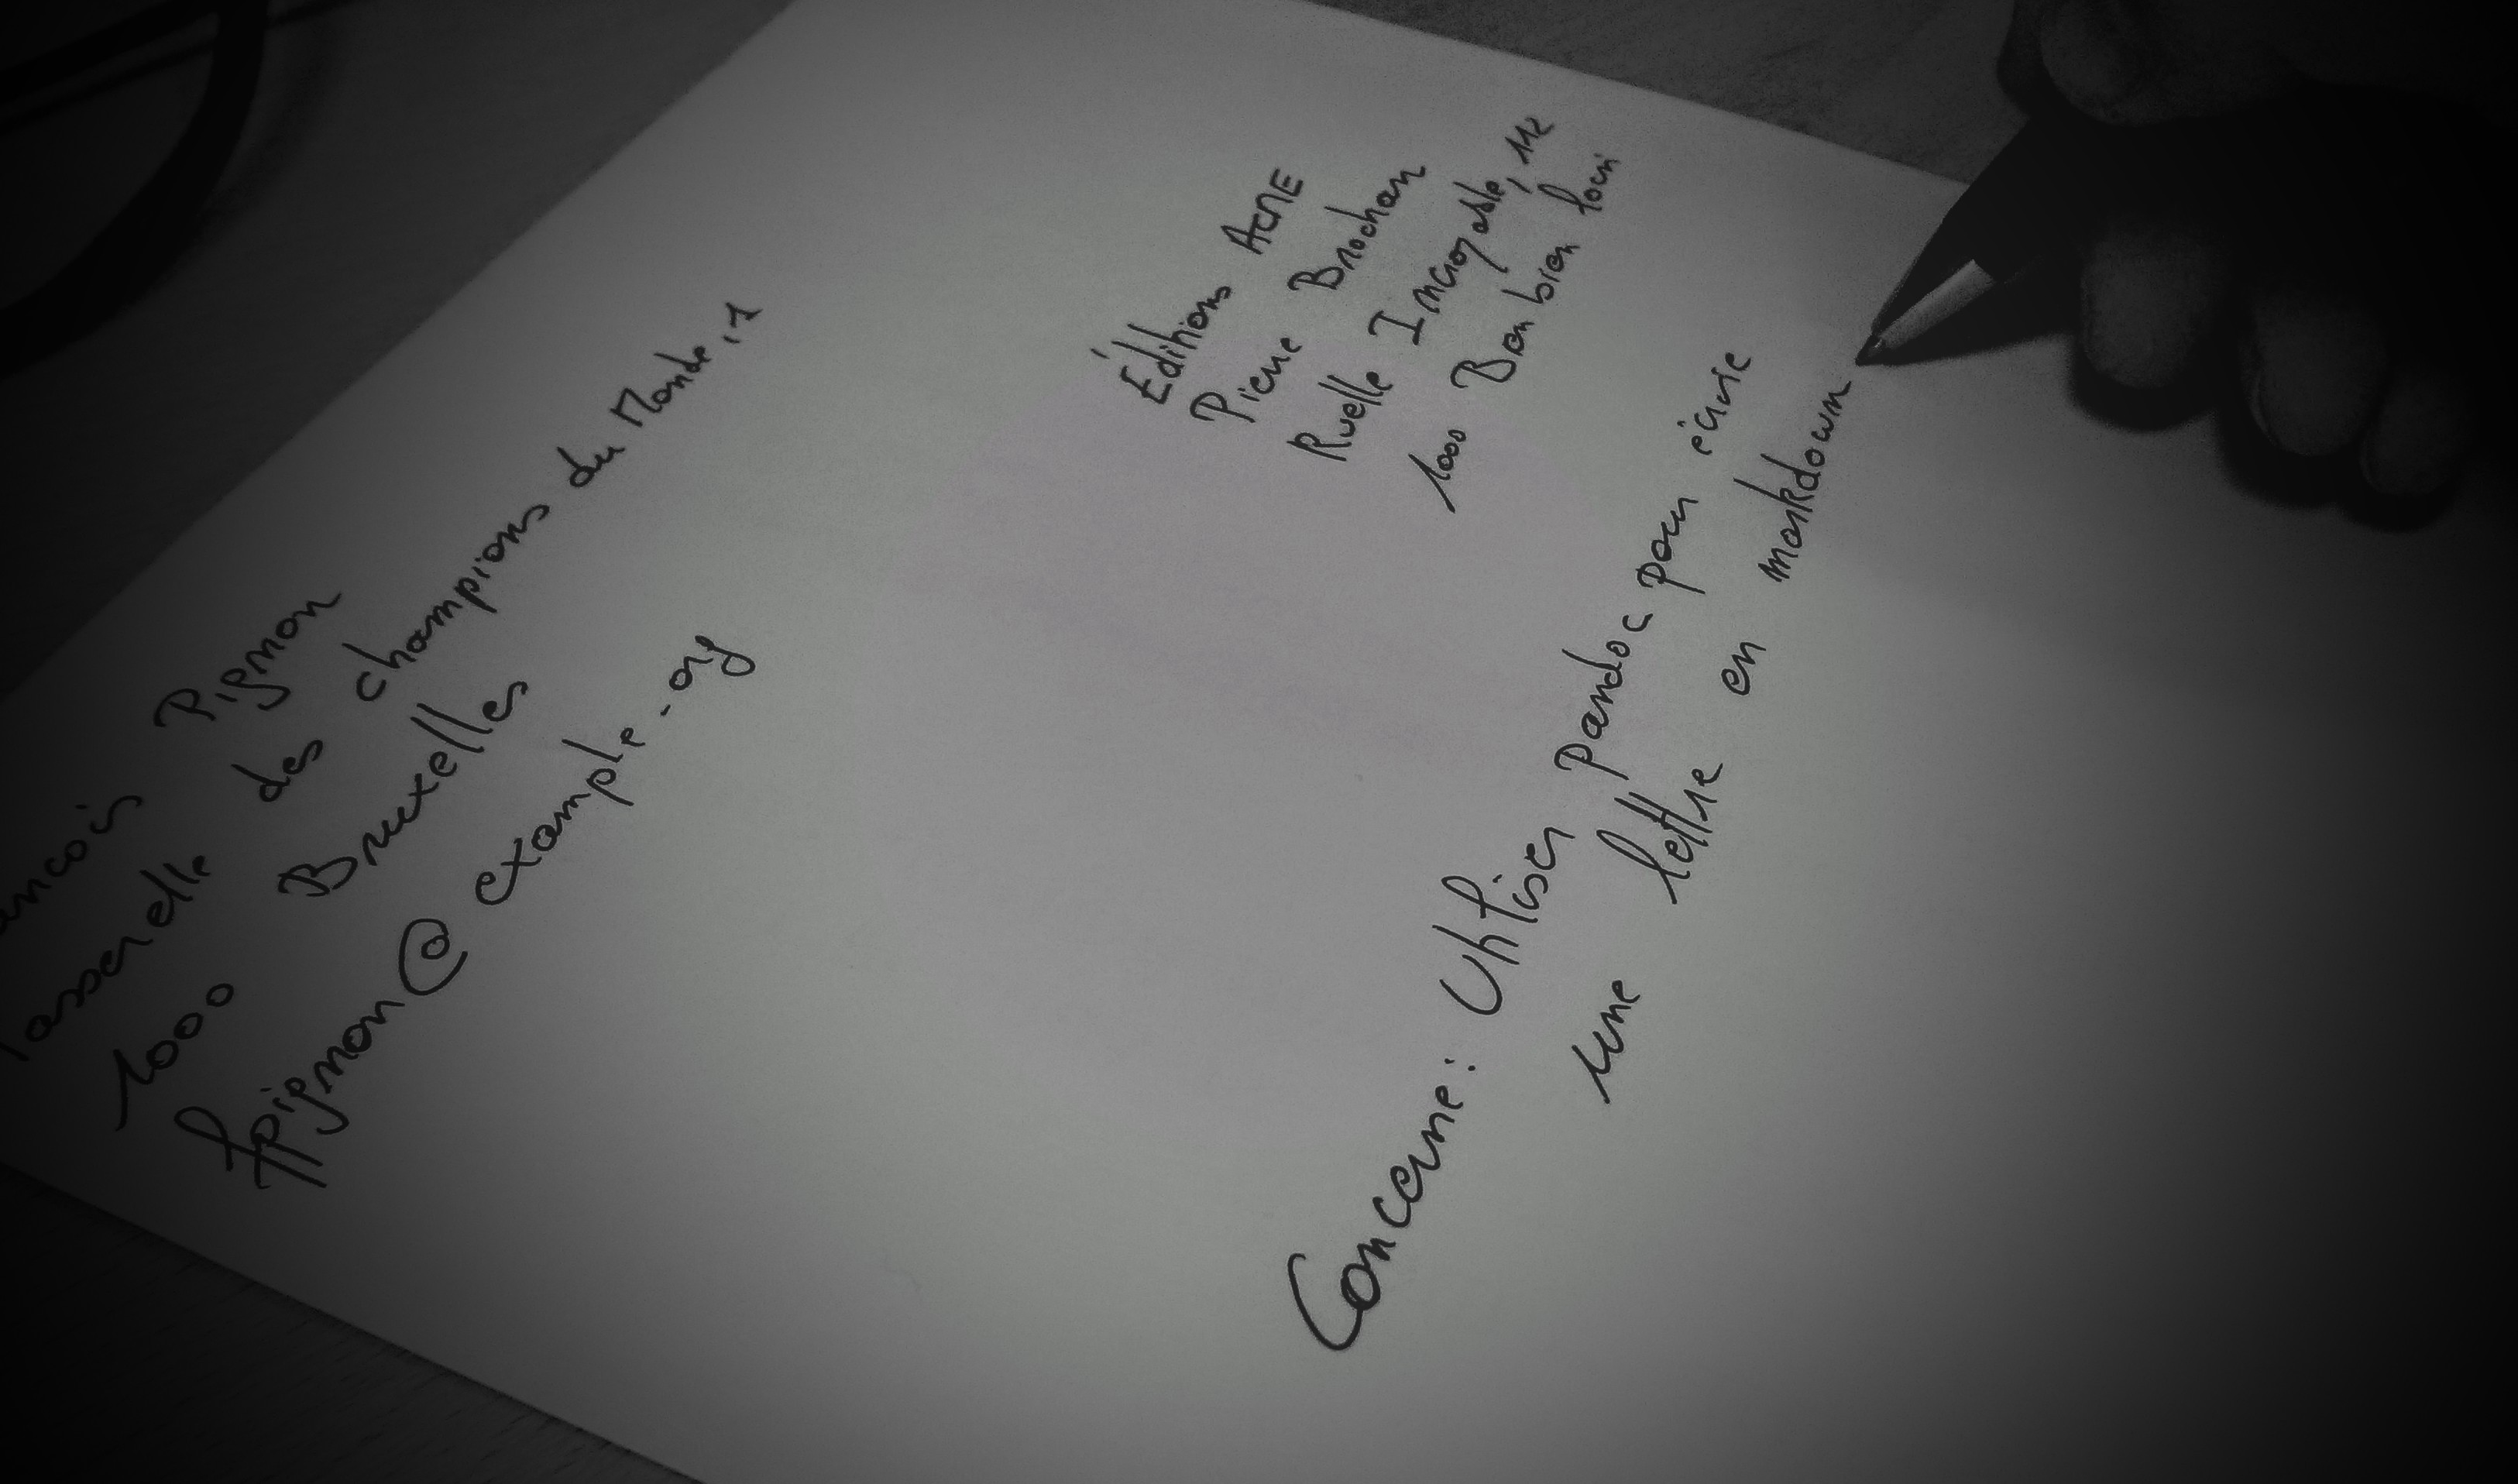 François Pignon
Passerelle des champions du Monde, 1
1000 Bruxelles
fpignon@example.org
Éditions ACME
Pierre Brochan
Ruelle Incroyable, 112
1000 Ben bien loin
Concerne: Utiliser pandoc pour écrire
une lettre en markdown